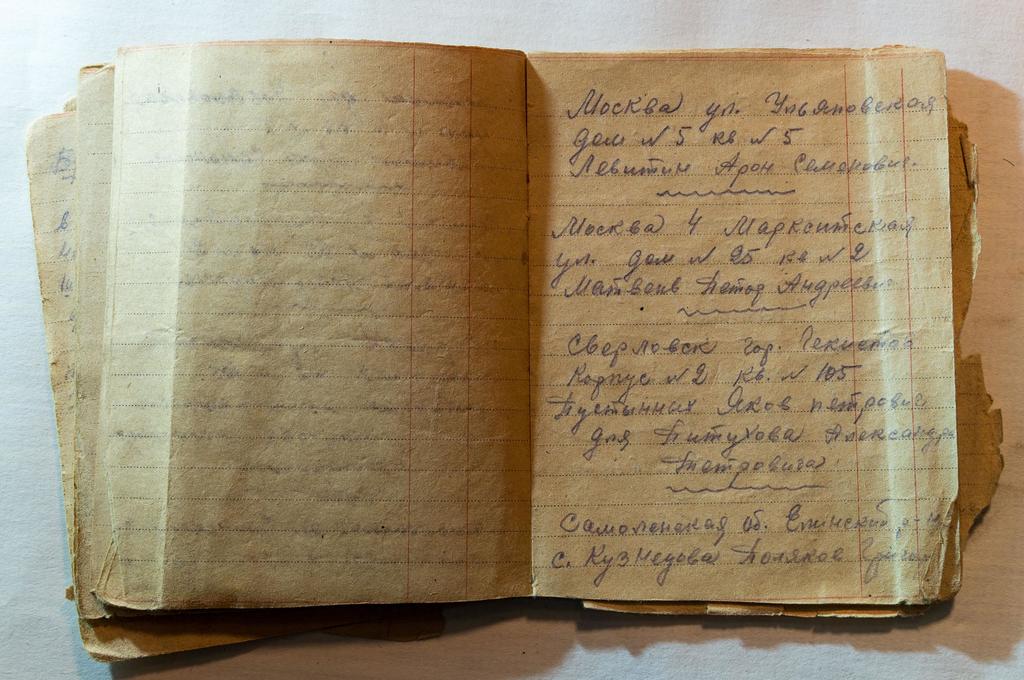 Москва ул. Ульяновская
дом № 5 кв № 5
Левитин Арон Семенович.
Москва 4 Маркситская
ул. дом № 25 кв № 2
Матвеив Петор Андреевич
Сверловск гор. Чекистов
Корпус № 2 кв. № 105
Пустынных Яков петрович
для Питухова Александра
Петровича
Самоленская об. Елинский р-н
с. Кузнедова Поляков